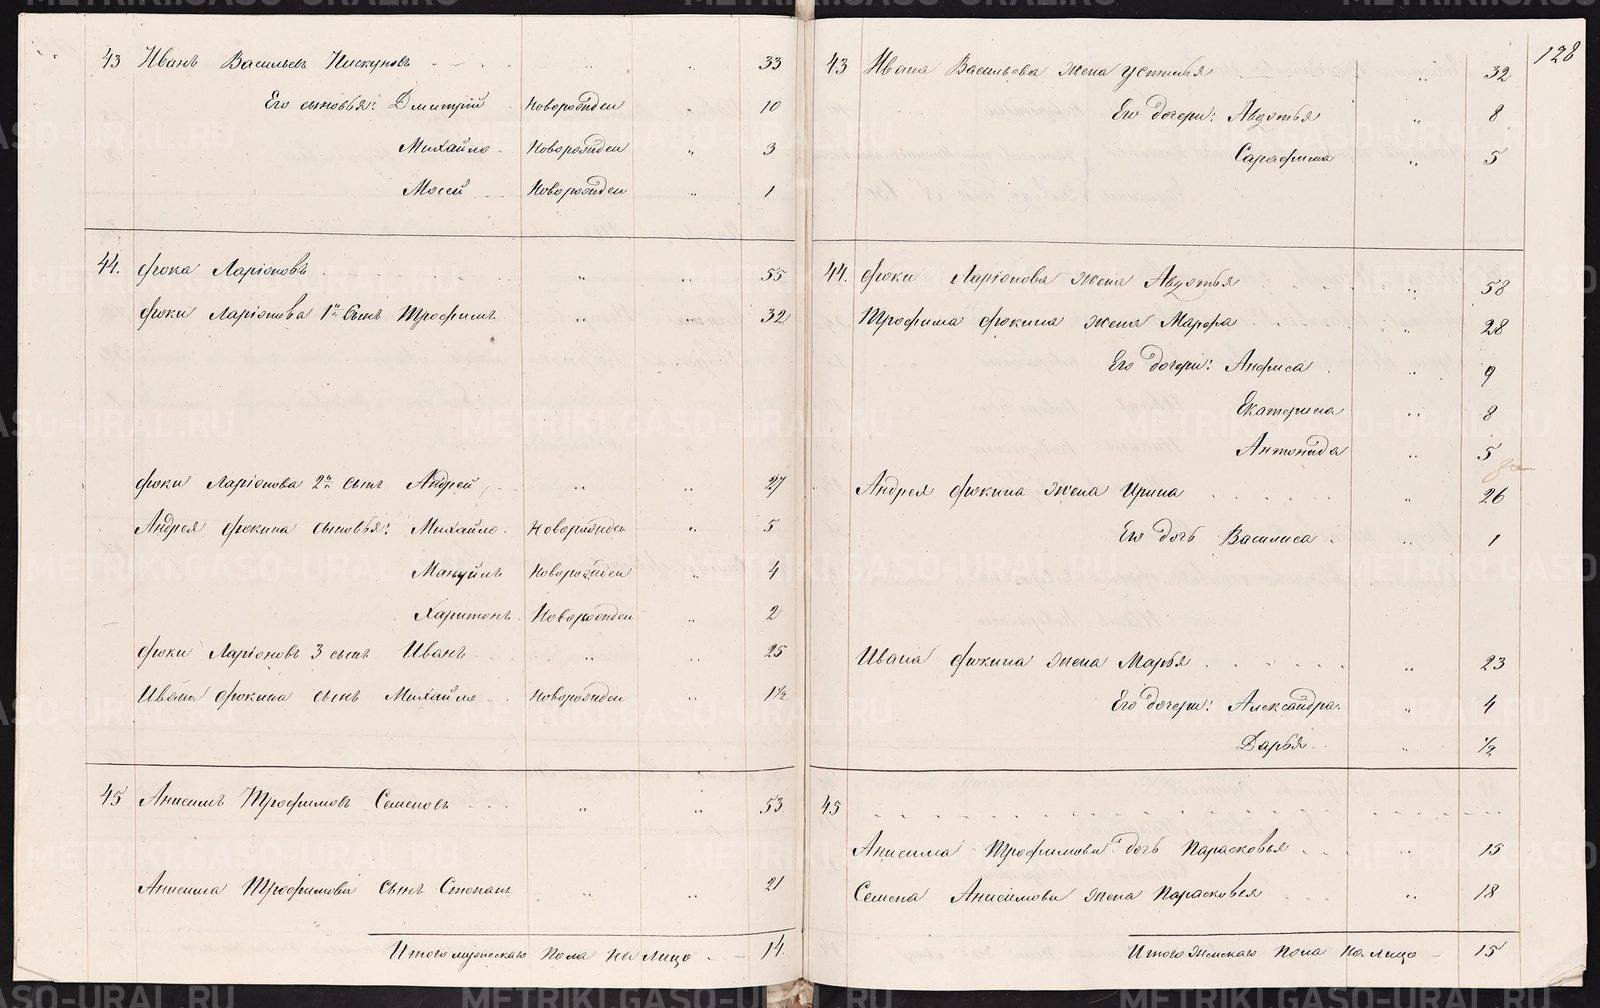 43 Иванъ Васильевъ Пискуновъ 33
Его сыновья: Дмитрій Новорожден 10
Михайло Новорожден 3
Мосей Новорожден 1
44. Фока Ларіоновъ 55
Фоки Ларіонова 1й сынъ Трофимъ 32
Фоки Ларіонова 2й сынъ Андрей 27
Андрея Фокина сыновья: Михайло Новорожден 5
Мануйлъ Новорожден 4
Харитонъ Новорожден 2
Фоки Ларіоновъ 3 сынъ Иванъ 25
Ивана Фокина сынъ Михайло Новорожден 1½
45 Анисимъ Трофимовъ Семеновъ 53
Анисима Трофимова сынъ Степанъ 21
Итого мужескаго пола на лицо 14.
128
43 Ивана Васильева жена Устинья 32
Его дочери: Авдотья 8
Сарафима 5
44. Фоки Ларіонова жена Авдотья 58
Трофима Фокина жена Марфа 28
Его дочери: Анфиса 9
Екатерина 8
Антонида 5
Андрея Фокина жена Ирина 26
Его дочь Василиса 1
Ивана Фокина жена Марья 23
Его дочери: Александра 4
Дарья ½
45
Анисима Трофимова дочь Парасковья 15
Семена Анисимова жена Парасковья 18
Итого женскаго пола на лицо 15
METRIKI.GASO-URAL.RU